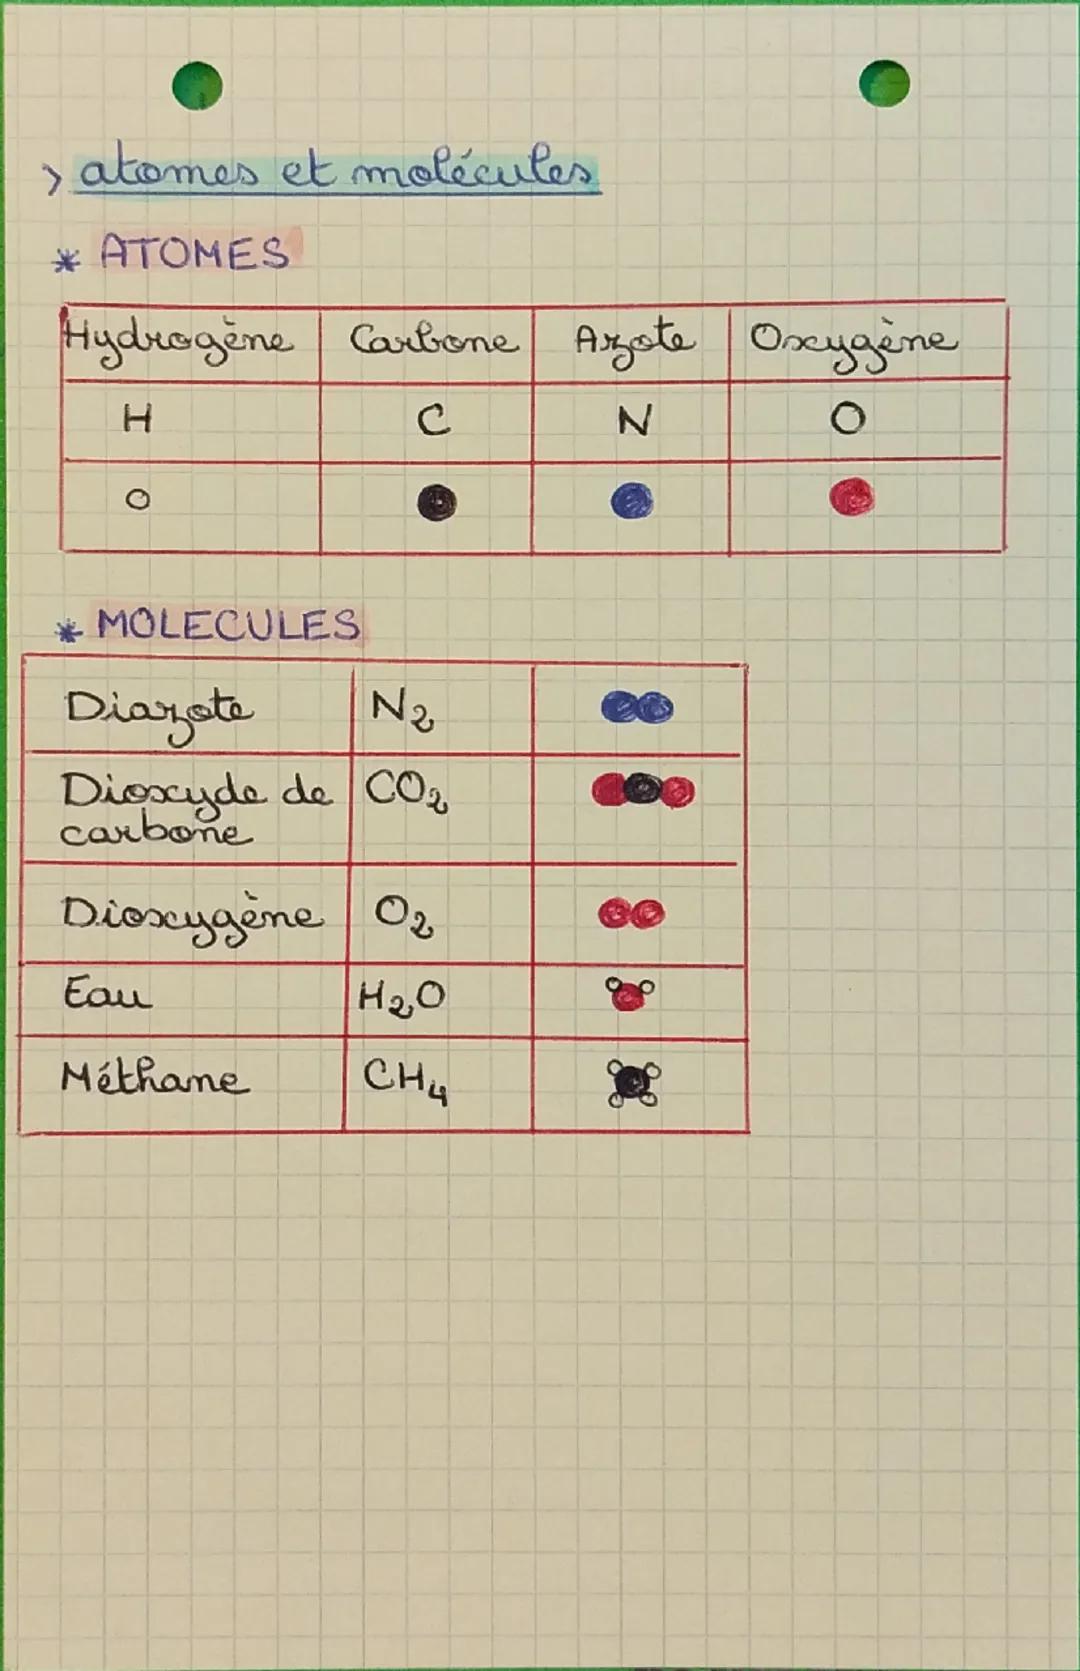 > atomes et molécules
* ATOMES
Hydrogène Carbone Azote Oxygène
H C N O
* MOLECULES
Diazote N₂
Dioxyde de CO₂
carbone
Dioxygène O₂
Eau H₂O
Méthane CH₄